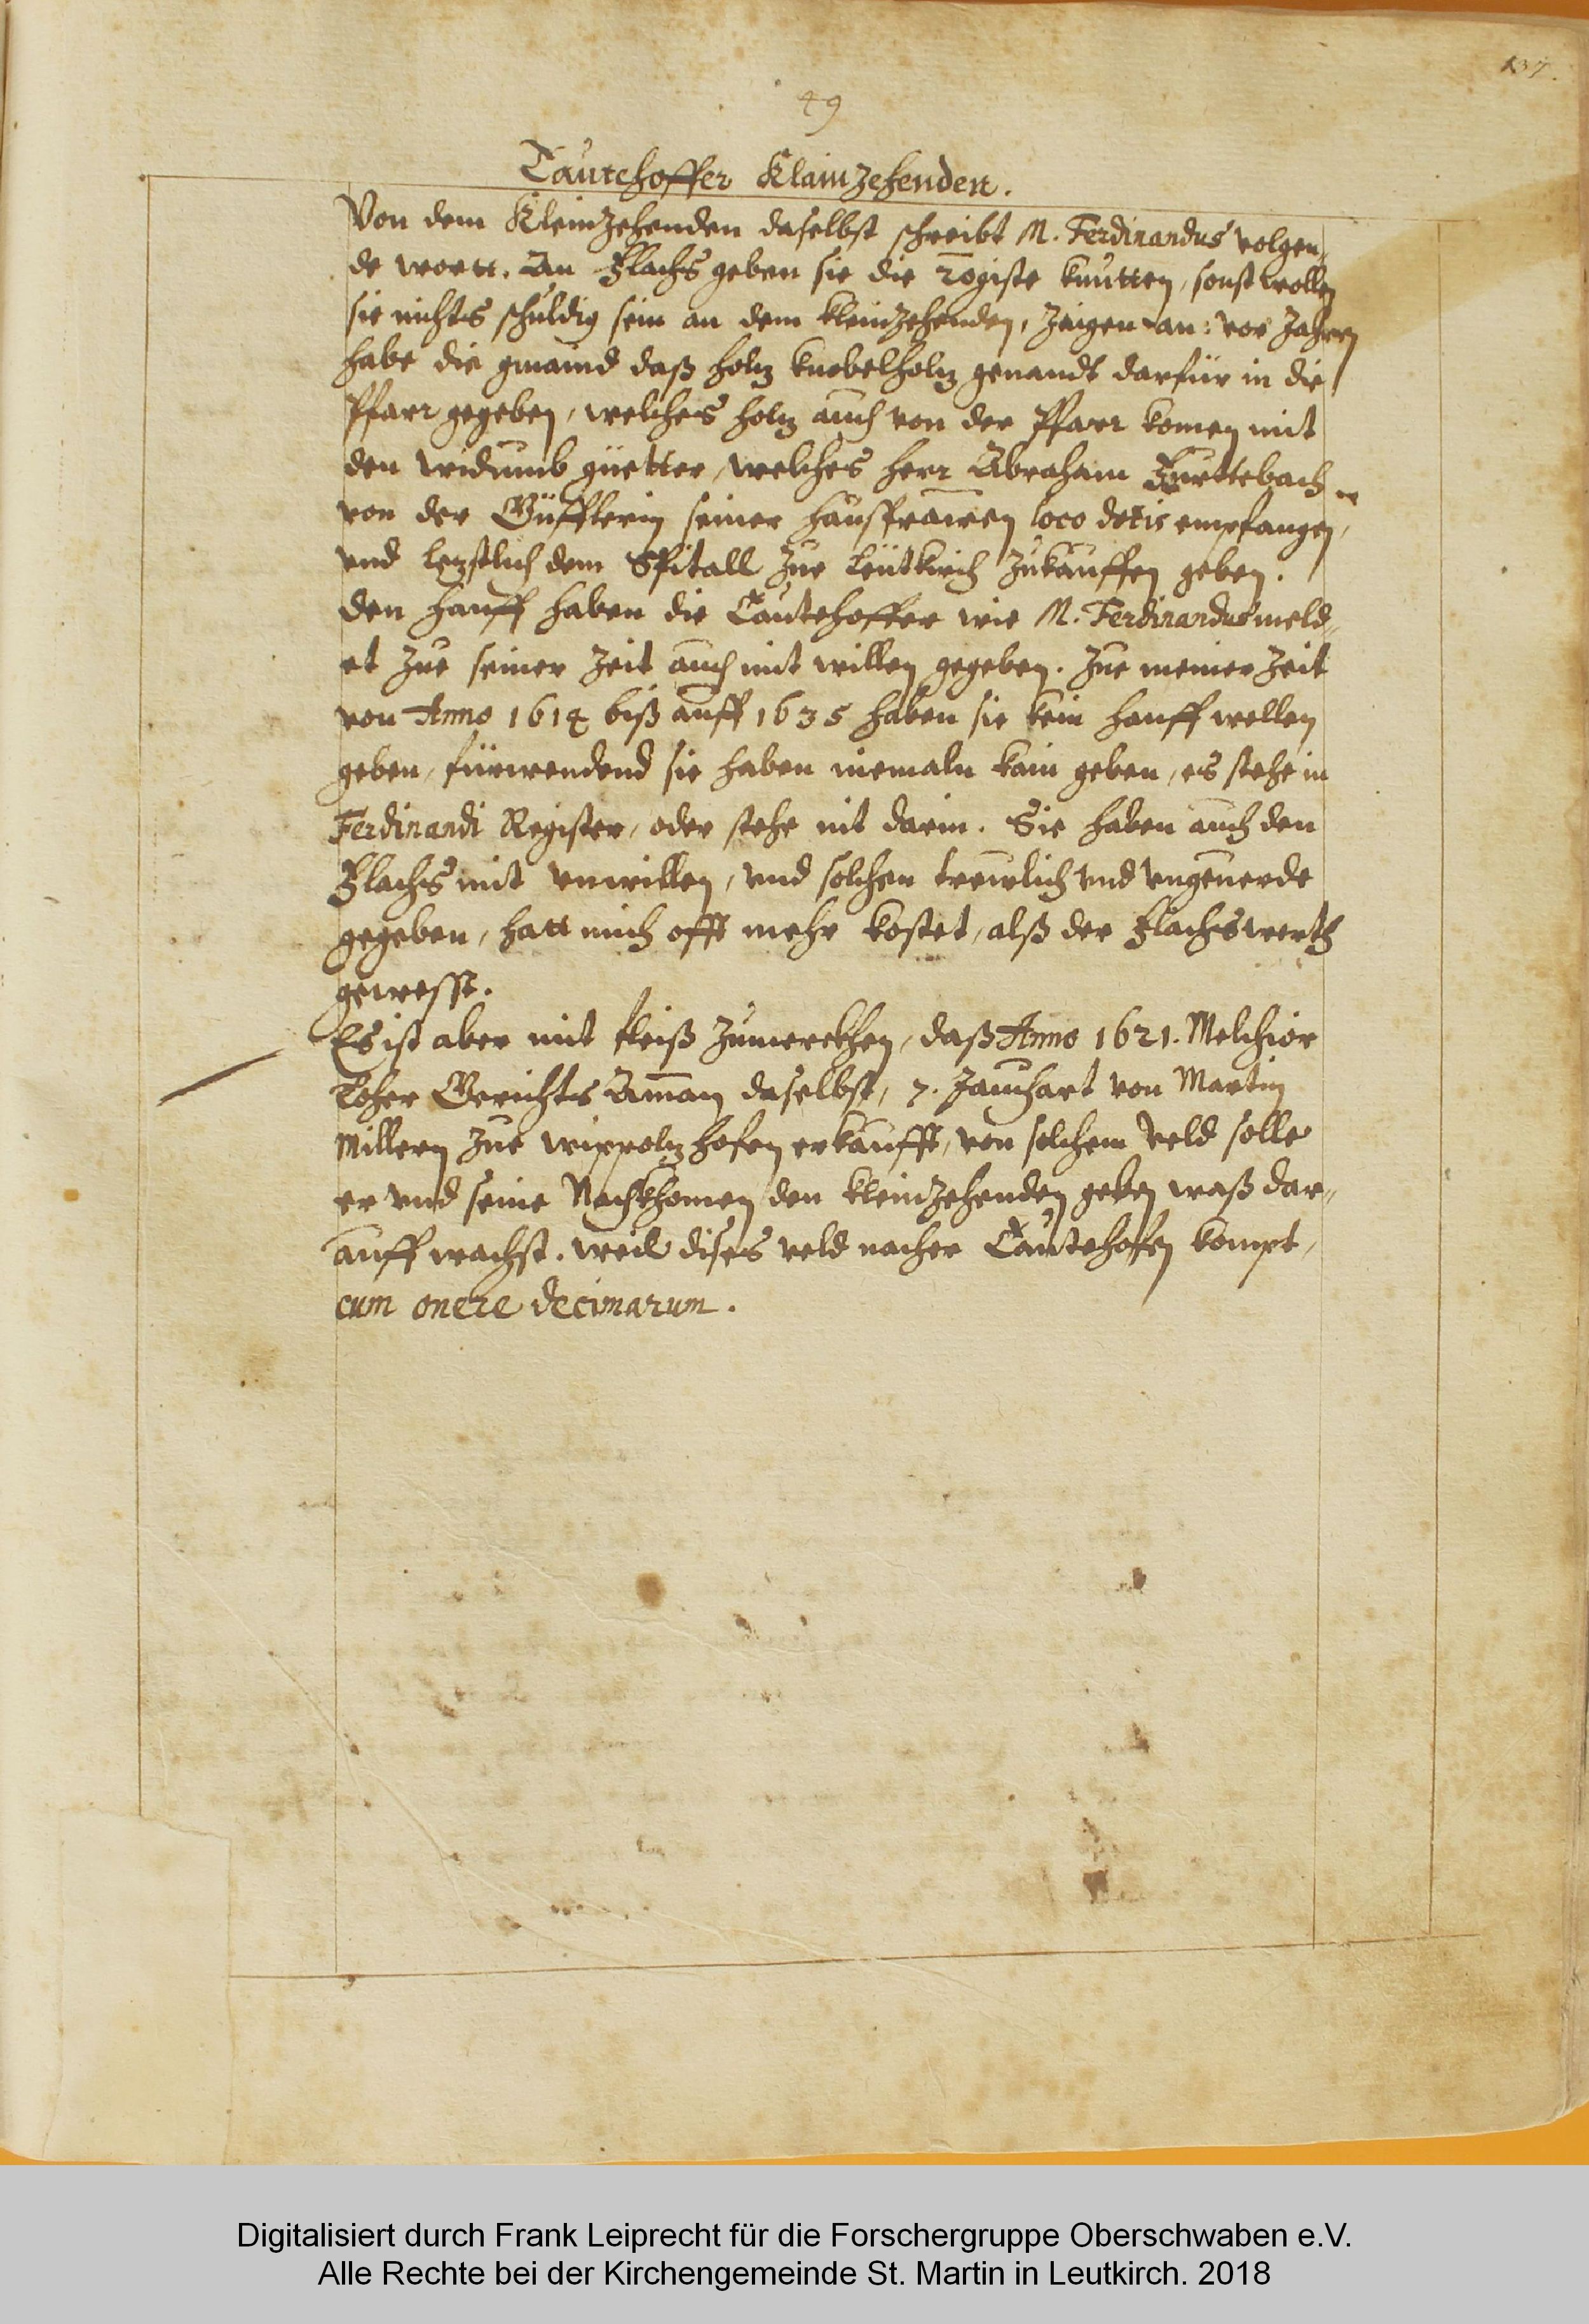 137.
49
Tautehoffer Klainzehenden.
Von dem Kleinzehenden daselbst schreibt M. Ferdinandus volgen„
de wortt. An Flachs geben sie die knütten, sonst wollen
sie nichts schuldig sein an dem kleinzehenden, zaigen an: vor Jahren
habe die gmaind daß holtz knobelholtz genandt darfür in die
Pfarr gegeben, welches holtz auch von der Pfarr komen mit
den widumb güetter, welches herr Abraham Furttebach
von der Güfflerin seiner haussfrawen loco dotis empfangen,
und letzstlich dem Spitall zue Leütkirch zukauffen geben.
den hanff haben die Tautehoffer wie M. Ferdinandus meld„
et zue seiner zeit auch mit willen gegeben. zue meiner zeit
von Anno 1614 biß auff 1635 haben sie kein hanff wellen
geben, fürwendend sie haben niemaln kain geben, es stehe in
Ferdinandi Register, oder stehe nit darin. Sie haben auch den
Flachs mit unwillen, und solchen trewlich und ungeuerde
gegeben, hatt mich offt mehr kostet, alß der Flachs werth
gewesst.
Es ist aber mit fleiß zumerckhen, daß Anno 1621. Melchior
Loher Gerichts Aman daselbst, 7. Jauchart von Martin
Millern zue wippoltzhofen erkaufft, von solchem veld solle
er und seine Nachkhomen den kleinzehenden geben waß dar„
auff wachst. weil dises veld nacher Tautehofen kompt,
cum onere decimarum.
Digitalisiert durch Frank Leiprecht für die Forschergruppe Oberschwaben e.V.
Alle Rechte bei der Kirchengemeinde St. Martin in Leutkirch. 2018